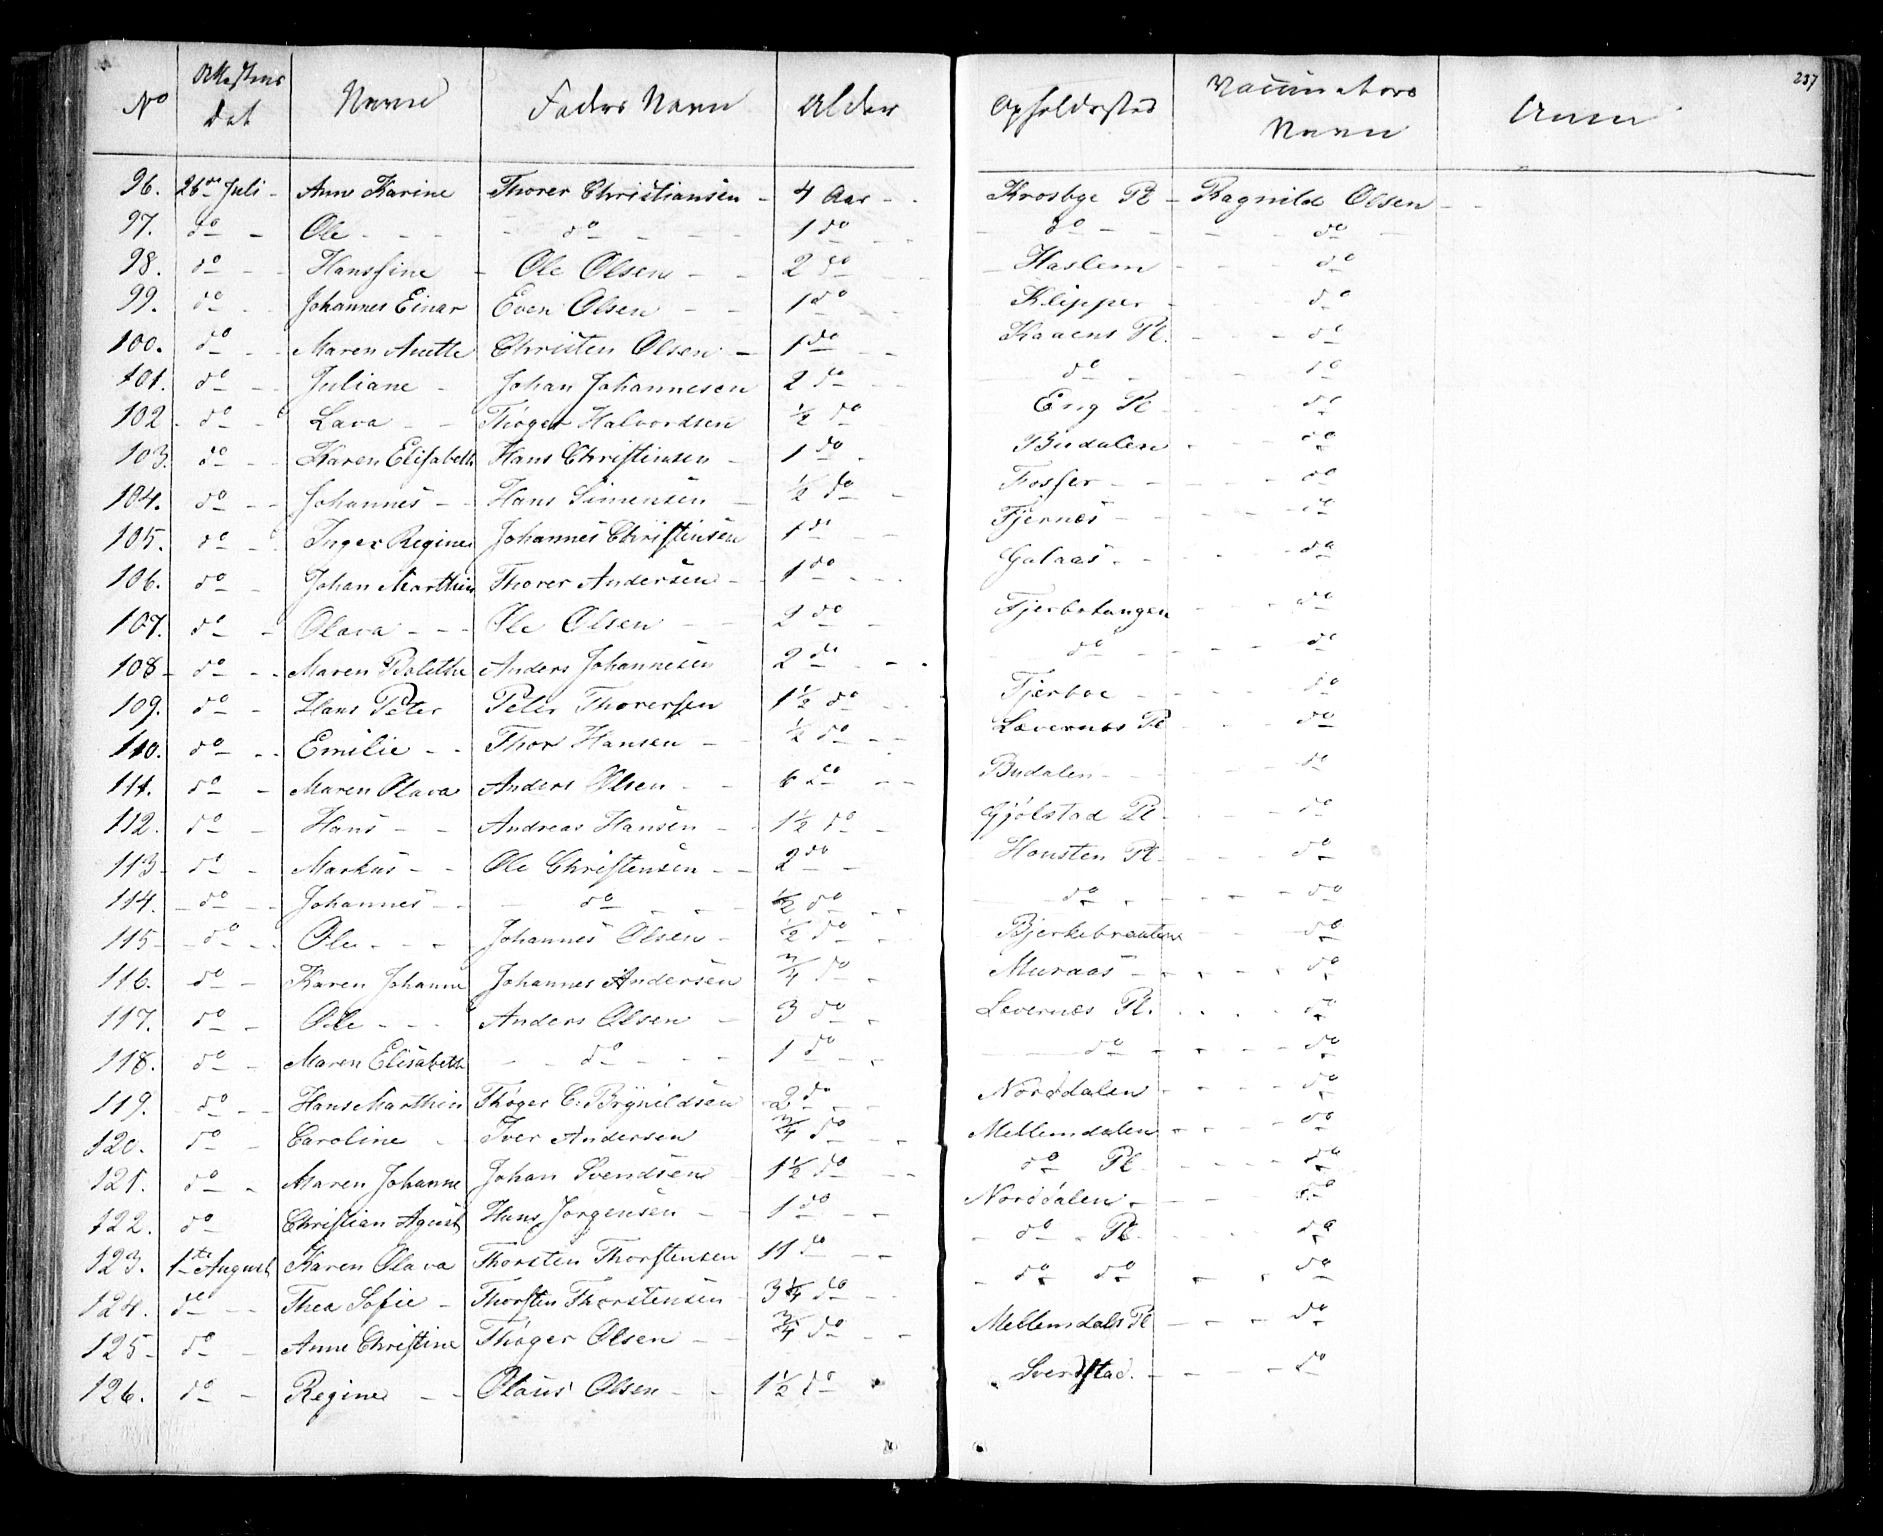 237
No Attestens Dat Navn Faders Navn Alder Opholdssted Vaccinateurs Navn Anm
96. 26de Juli - Anne Karine Thorer Christiansen - 4 Aar - Krosbye Pl - Ragnild Olsen -
97. do - Ole - - - do - - 1 do - do - - do -
98. do - Hansfine - Ole Olsen - 2 do - Haslem - do
99. do - Johannes Einar Even Olsen - 1 do - Klipper - do
100. do - Maren Anette Christen Olsen - 1 do - Kaaens Pl. - do
101. do - Juliane - Johan Johannesen 2 do - do - do
102. do - Lava - Thøger Halvordsen ½ do - Eng Pl - do
103. do - Karen Elisabeth Hans Christensen - 1 do - Budalen - do
104. do - Johannes - Hans Simensen - ½ do - Fosser - do
105. do - Inger Regine Johannes Christensen 1 do - Fjernes - do
106. do - Johan Marthin Thorer Andersen - 1 do - Galaas - do
107. do - Olava - Ole Olsen - 2 do - Tjerbotangen - do
108 - do - Maren Bolethe Anders Johannesen 2 do - do - do
109. do - Hans Peter Peter Thoversen 1½ do - Tjerboe - do
110. do - Emilie - Thor Hansen - ½ do - Levernæs Pl - do
111. do - Maren Olava Anders Olsen - 6 do - Budalen - do
112. do - Hans - Andreas Hansen - 1½ do - Gjølstad Pl - do
113 - do - Markus - Ole Christensen - 2 do - Housten Pl - do
114. - do - Johannes - do - ½ do - do - do
115 - do - Ole - - Johannes Olsen - ½ do - Bjerkebraaten - do
116. do - Karen Johanne Johannes Andersen ¾ do - Muraas - do
117. do - Ole - - Anders Olsen - 3 do - Levernæs Pl. - do
118. do - Maren Elisabeth - do - 1 do - do - do
119. do - Hans Marthin Thøger C. Brynildsen 2 do - Norddalen - do
120. do - Caroline - Iver Andersen ¾ do - Mellemdalen - do
121. do - Maren Johanne Johan Svendsen - 1½ do - do Pl. - do
122. do Christian Agust Hans Jørgensen - 1 do - Norddalen - do
123. 1te August Karen Olava Thorsten Thorstensen 11 do - do Pl. - do
124. do - Thea Sofie - Thorsten Thorstensen - 3¼ do - do do - do
125 - do - Anne Christine Thøger Olsen - ¾ do - Mellemdals Pl - do
126. do - Regine - Olaus Olsen - 1½ do - Sverdstad. - do